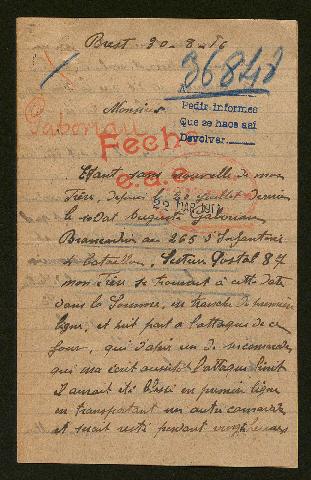 Brest 30-8-16
36848
Monsieur
Pedir informes
Que se hace así
Devolver
Gaboriau
Fecho
e.a.
Etant sans nouvelle de mon
frère, depuis le 20 juillet dernier
le soldat Auguste Gaboriau
Brancardier au 265 d'Infanterie
de bataillon, Secteur Postal 87
mon frère se trouvait à cette date
dans la Somme, en tranchée de première
ligne, et prit part à l'attaque de ce
jour, qui d'après un de ses camarades
qui m'a écrit aussitôt l'attaque finit
il aurait été blessé en première ligne
en transportant un autre camarade
et serait resté pendant vingt heures